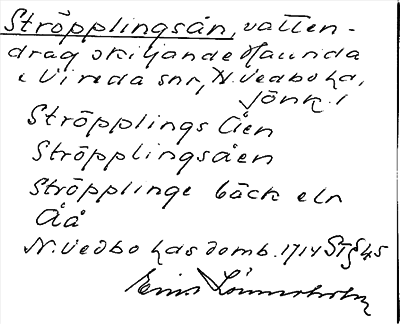 Ströpplingsån, vatten-
drag skiljande Haurida
o Vireda snr, N. Vedbo hd,
Jönk. l
Ströpplings Åen
Ströpplingsåen
Ströpplinge bäck eln
Åå
N. Vedbo hds domb. 1714 St § 45